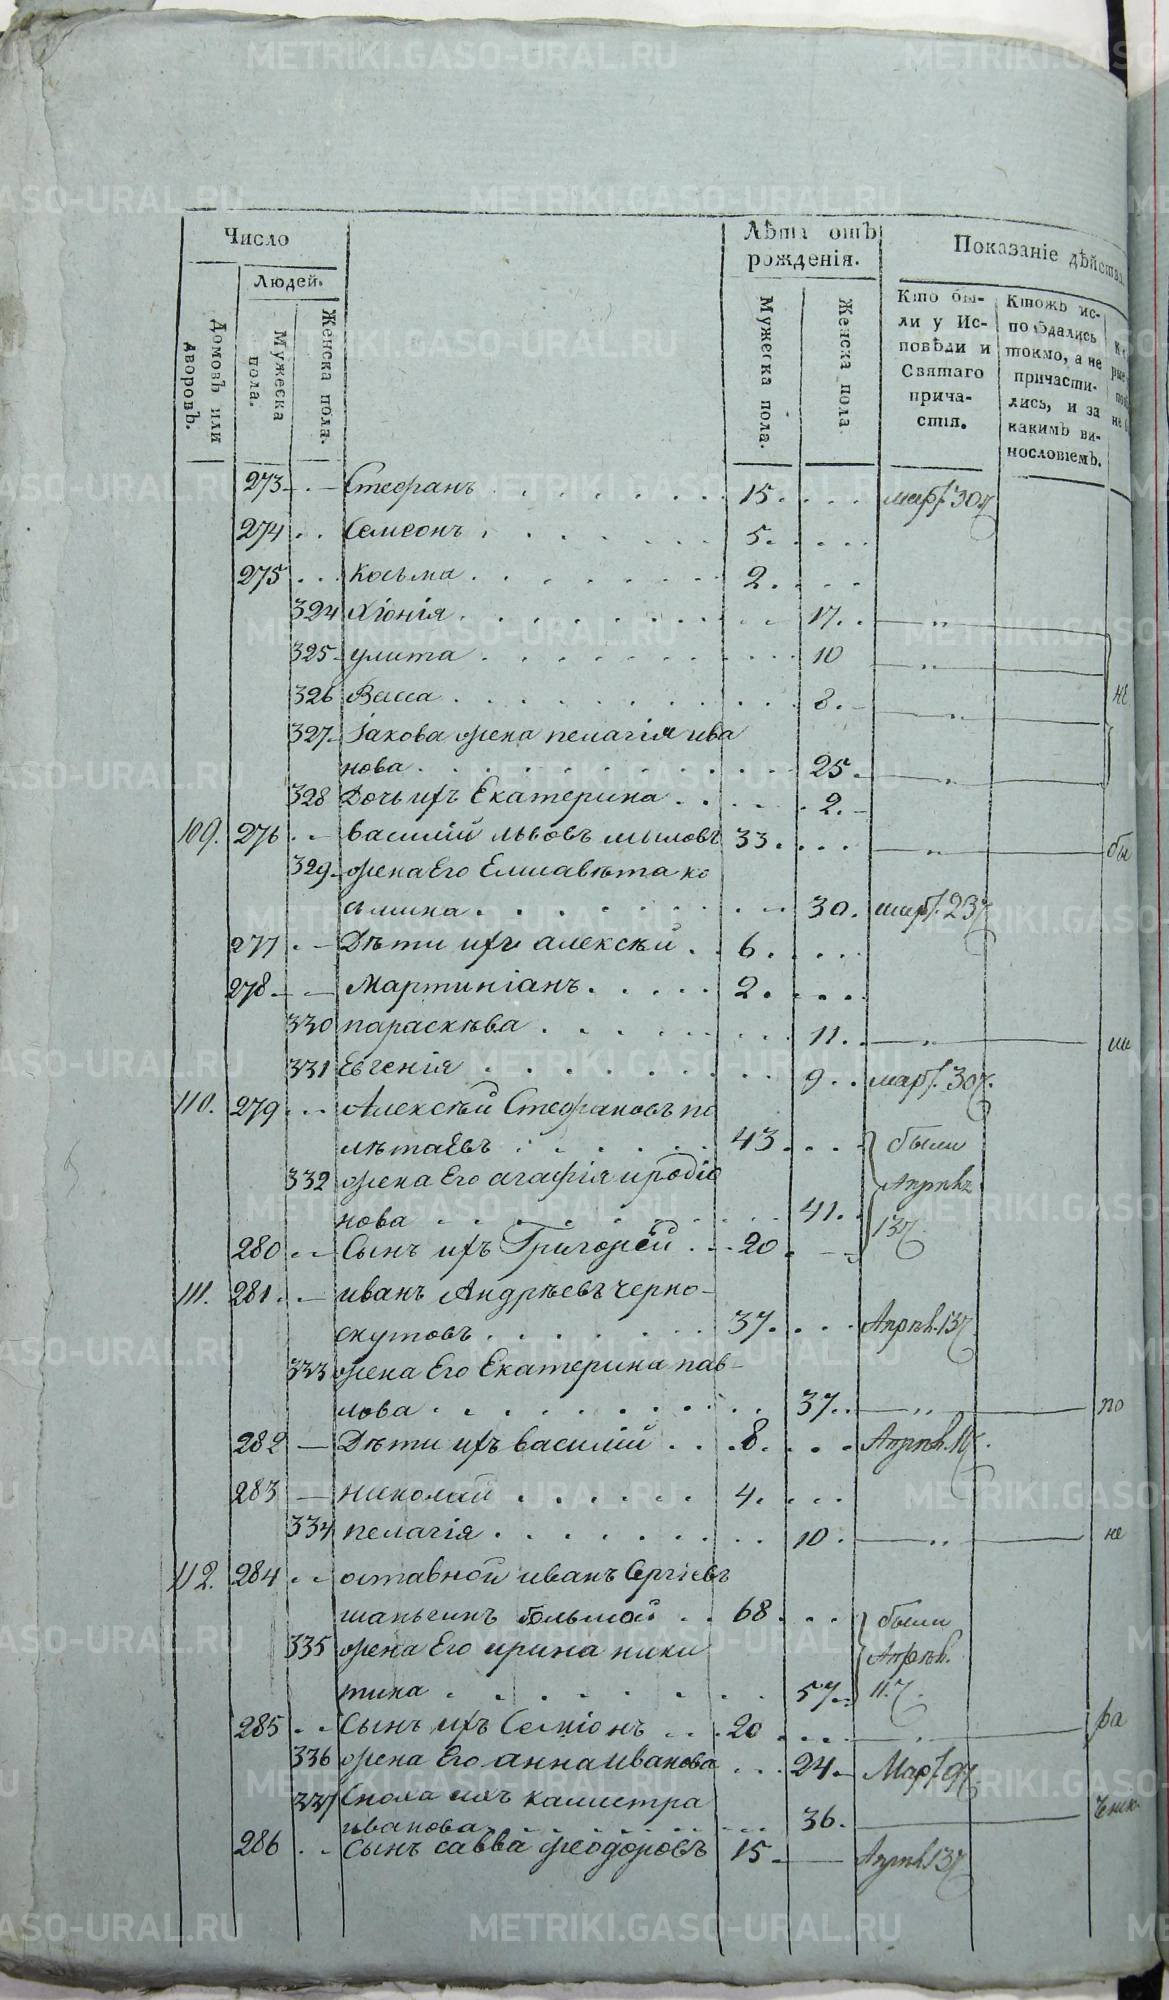 Число
Лѣта отъ рожденія.
Показаніе дѣйства
Людей.
Домовъ или дворовъ.
Мужеска пола.
Женска пола.
Мужеска пола.
Женска пола
Кто бы-
ли у Ис-
повѣди и
Святаго
прича-
стія.
Ктожъ ис-
повѣдались
токмо, а не
причасти-
лись, и за
какимъ ви-
нословіемъ.
273 Стефанъ 15 март. 30
274 Семеонъ 5
275 Косьма 2
324 Хіонія 17
325 улита 10
326 Васса 8 не
327 Іакова жена пелагія ива
нова 25
328 Дочь ихъ Екатерина 2
109. 276 василій львовъ мыловъ 33 бы
329 жена Его Елисавѣта ко
смина 30 март. 23
277 Дѣти ихъ алексѣй 6
278 Мартиніанъ 2
330 параскѣва 11
331 Евгенія 9 март. 30
110. 279 Алексѣй Стефановъ по
лѣтаевъ 43 были
332 жена Его агафія иродіо
нова 41 Апрѣл 13
280 Сынъ ихъ Григорей 20
111. 281 иванъ Андрѣевъ черно-
скутовъ 37 Апрѣл. 13
333 жена Его Екатерина пав-
лова 37 по
282 Дѣти ихъ василій 8 Апрѣл.
283 николай 4
334 пелагія 10 не
112. 284 отставной иванъ Сергіевъ
шаньгинъ большой 68 были
335 жена Его ирина ники
тина 57 Апрѣл. 11
285 Сынъ ихъ Семіонъ 20 ра
336 жена Его анна иванова 24 Март. 9
337 Сноха ихъ калистра
иванова 36
286 Сынъ савва феодоровъ 15 Апрѣл. 13
METRIKI.GASO-URAL.RU